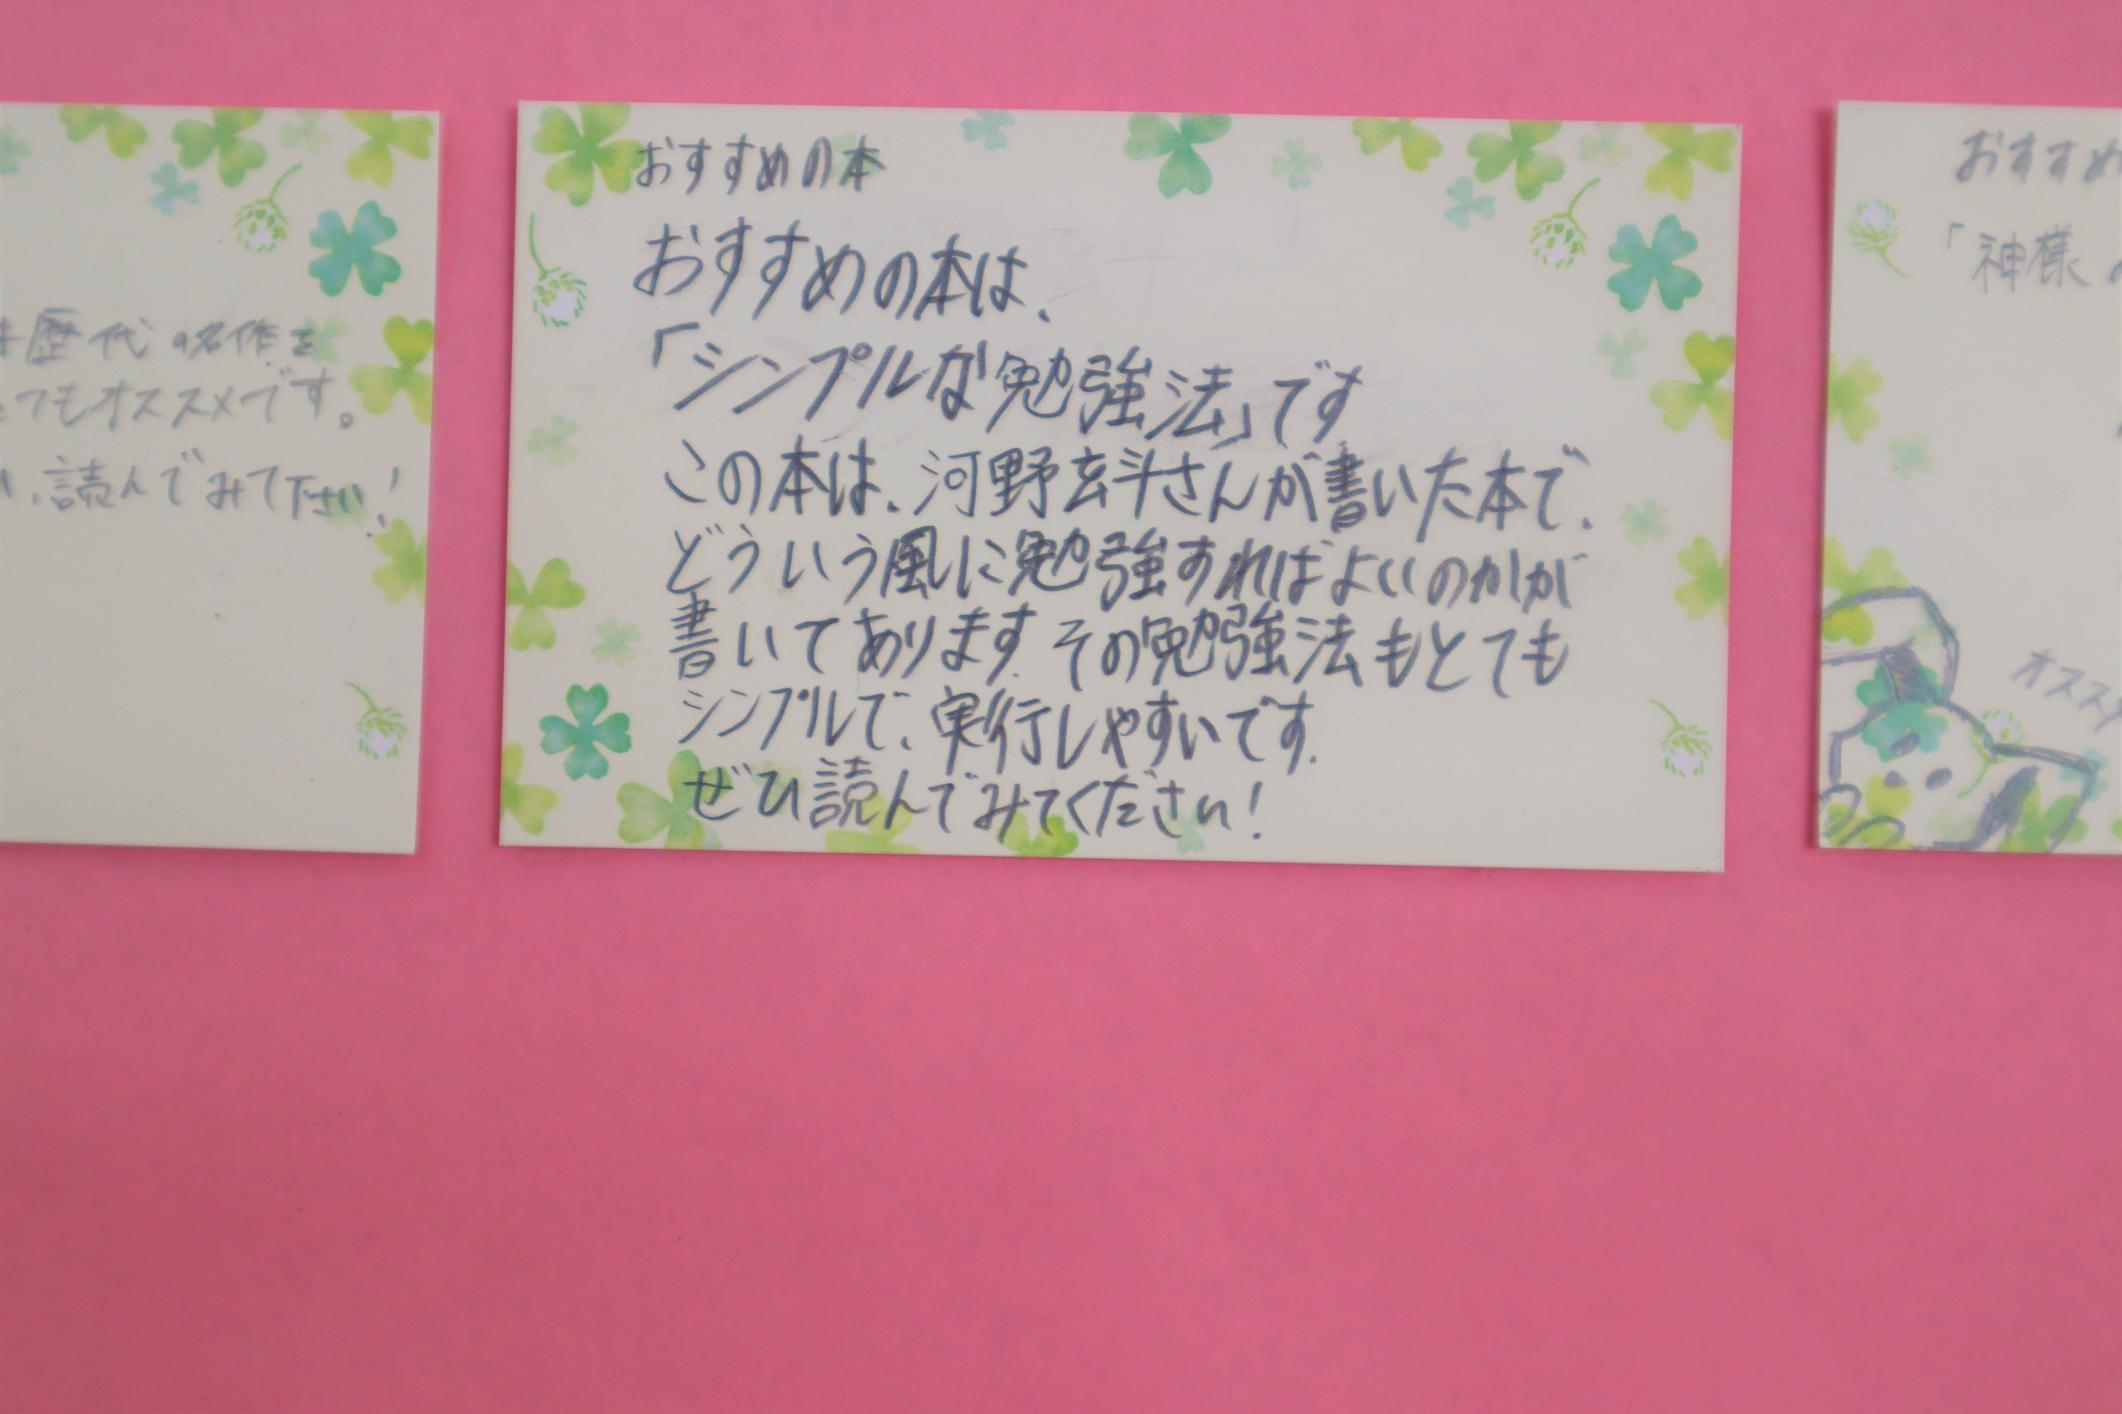 歴代の名作を
てもオススメです。
、読んでみて下さい!
おすすめの本
おすすめの本は、
「シンプルな勉強法」です
この本は、河野玄斗さんが書いた本で、
どういう風に勉強すればよいのかが
書いてあります。その勉強法もとても
シンプルで、実行しやすいです。
ぜひ読んでみてください!
おすすめ
「神様
オススメ